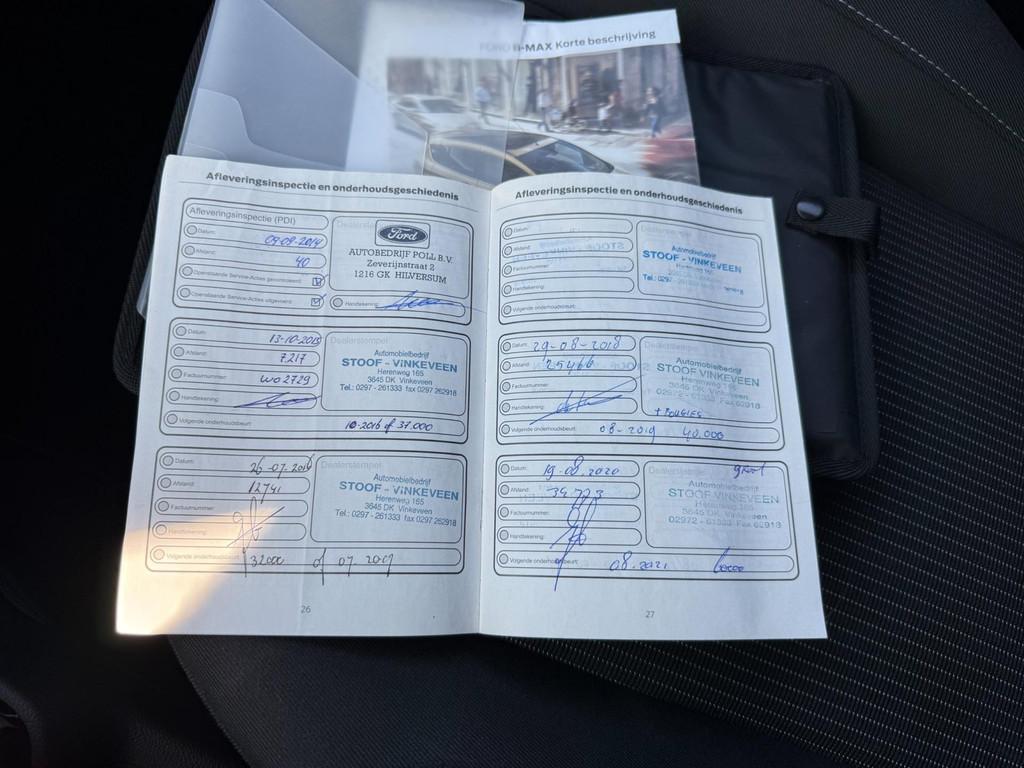 B-MAX Korte beschrijving
Afleveringsinspectie en onderhoudsgeschiedenis
Afleveringsinspectie (PDI)
Datum:
09-09-2014
Afstand:
40
Openstaande Service-Acties gecontroleerd:
Openstaande Service-Acties uitgevoerd:
Dealerstempel
Ford
AUTOBEDRIJF POLL B.V.
Zeverijnstraat 2
1216 GK HILVERSUM
Handtekening:
Datum:
13-10-2015
Afstand:
7217
Factuurnummer:
WO2729
Handtekening:
Volgende onderhoudsbeurt:
10-2016 of 37.000
Dealerstempel
Automobielbedrijf
STOOF - VINKEVEEN
Herenweg 165
3645 DK Vinkeveen
Tel.: 0297 - 261333 fax 0297 262918
Datum:
26-07-2016
Afstand:
12741
Factuurnummer:
Handtekening:
Volgende onderhoudsbeurt:
32000 of 07.2017
Dealerstempel
Automobielbedrijf
STOOF - VINKEVEEN
Herenweg 165
3645 DK Vinkeveen
Tel.: 0297 - 261333 fax 0297 262918
26
Afleveringsinspectie en onderhoudsgeschiedenis
Datum:
Afstand:
Factuurnummer:
Handtekening:
Volgende onderhoudsbeurt:
Automobielbedrijf
STOOF - VINKEVEEN
Herenweg 165
Tel.: 0297
Datum:
29-08-2018
Afstand:
25466
Factuurnummer:
Handtekening:
Volgende onderhoudsbeurt:
08-2019 40.000
Automobielbedrijf
STOOF VINKEVEEN
Herenweg 165
3645 DK Vinkeveen
02972 - 61333 Fax 62918
+ BOUGIES
Datum:
19-08-2020
Afstand:
34773
Factuurnummer:
Handtekening:
Volgende onderhoudsbeurt:
08.2021
Automobielbedrijf
STOOF VINKEVEEN
Herenweg 165
3645 DK Vinkeveen
02972 - 61333 Fax 62918
27